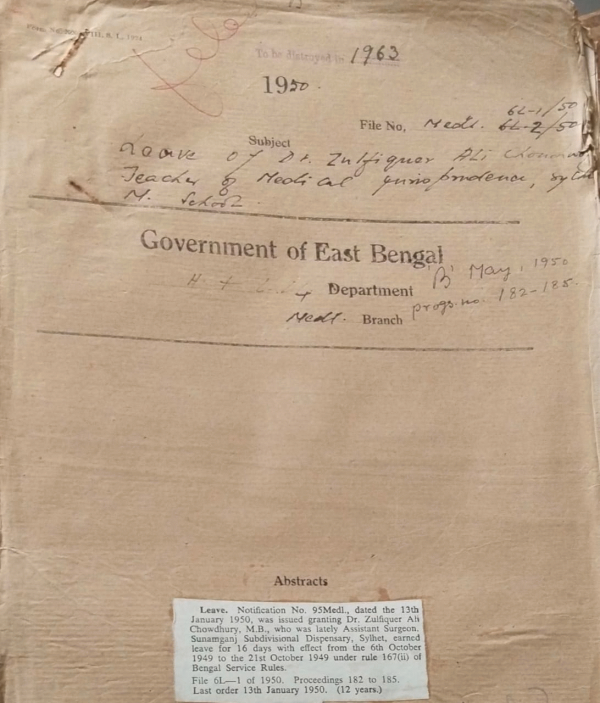 To be distroyed in 1963
1950.
6L-1/50
File No, Medl. 6L-2/50
Subject
Leave of Dr. Zulfiquer Ali
Teacher of Medical jurisprudence,
M. School.
Government of East Bengal
'B' May, 1950
Department
progs. no. 182-185.
Medl. Branch
Abstracts
Leave. Notification No. 95Medl., dated the 13th
January 1950, was issued granting Dr. Zulfiquer Ali
Chowdhury, M.B., who was lately Assistant Surgeon.
Sunamganj Subdivisional Dispensary, Sylhet, earned
leave for 16 days with effect from the 6th October
1949 to the 21st October 1949 under rule 167(ii) of
Bengal Service Rules.
File 6L—1 of 1950. Proceedings 182 to 185.
Last order 13th January 1950. (12 years.)